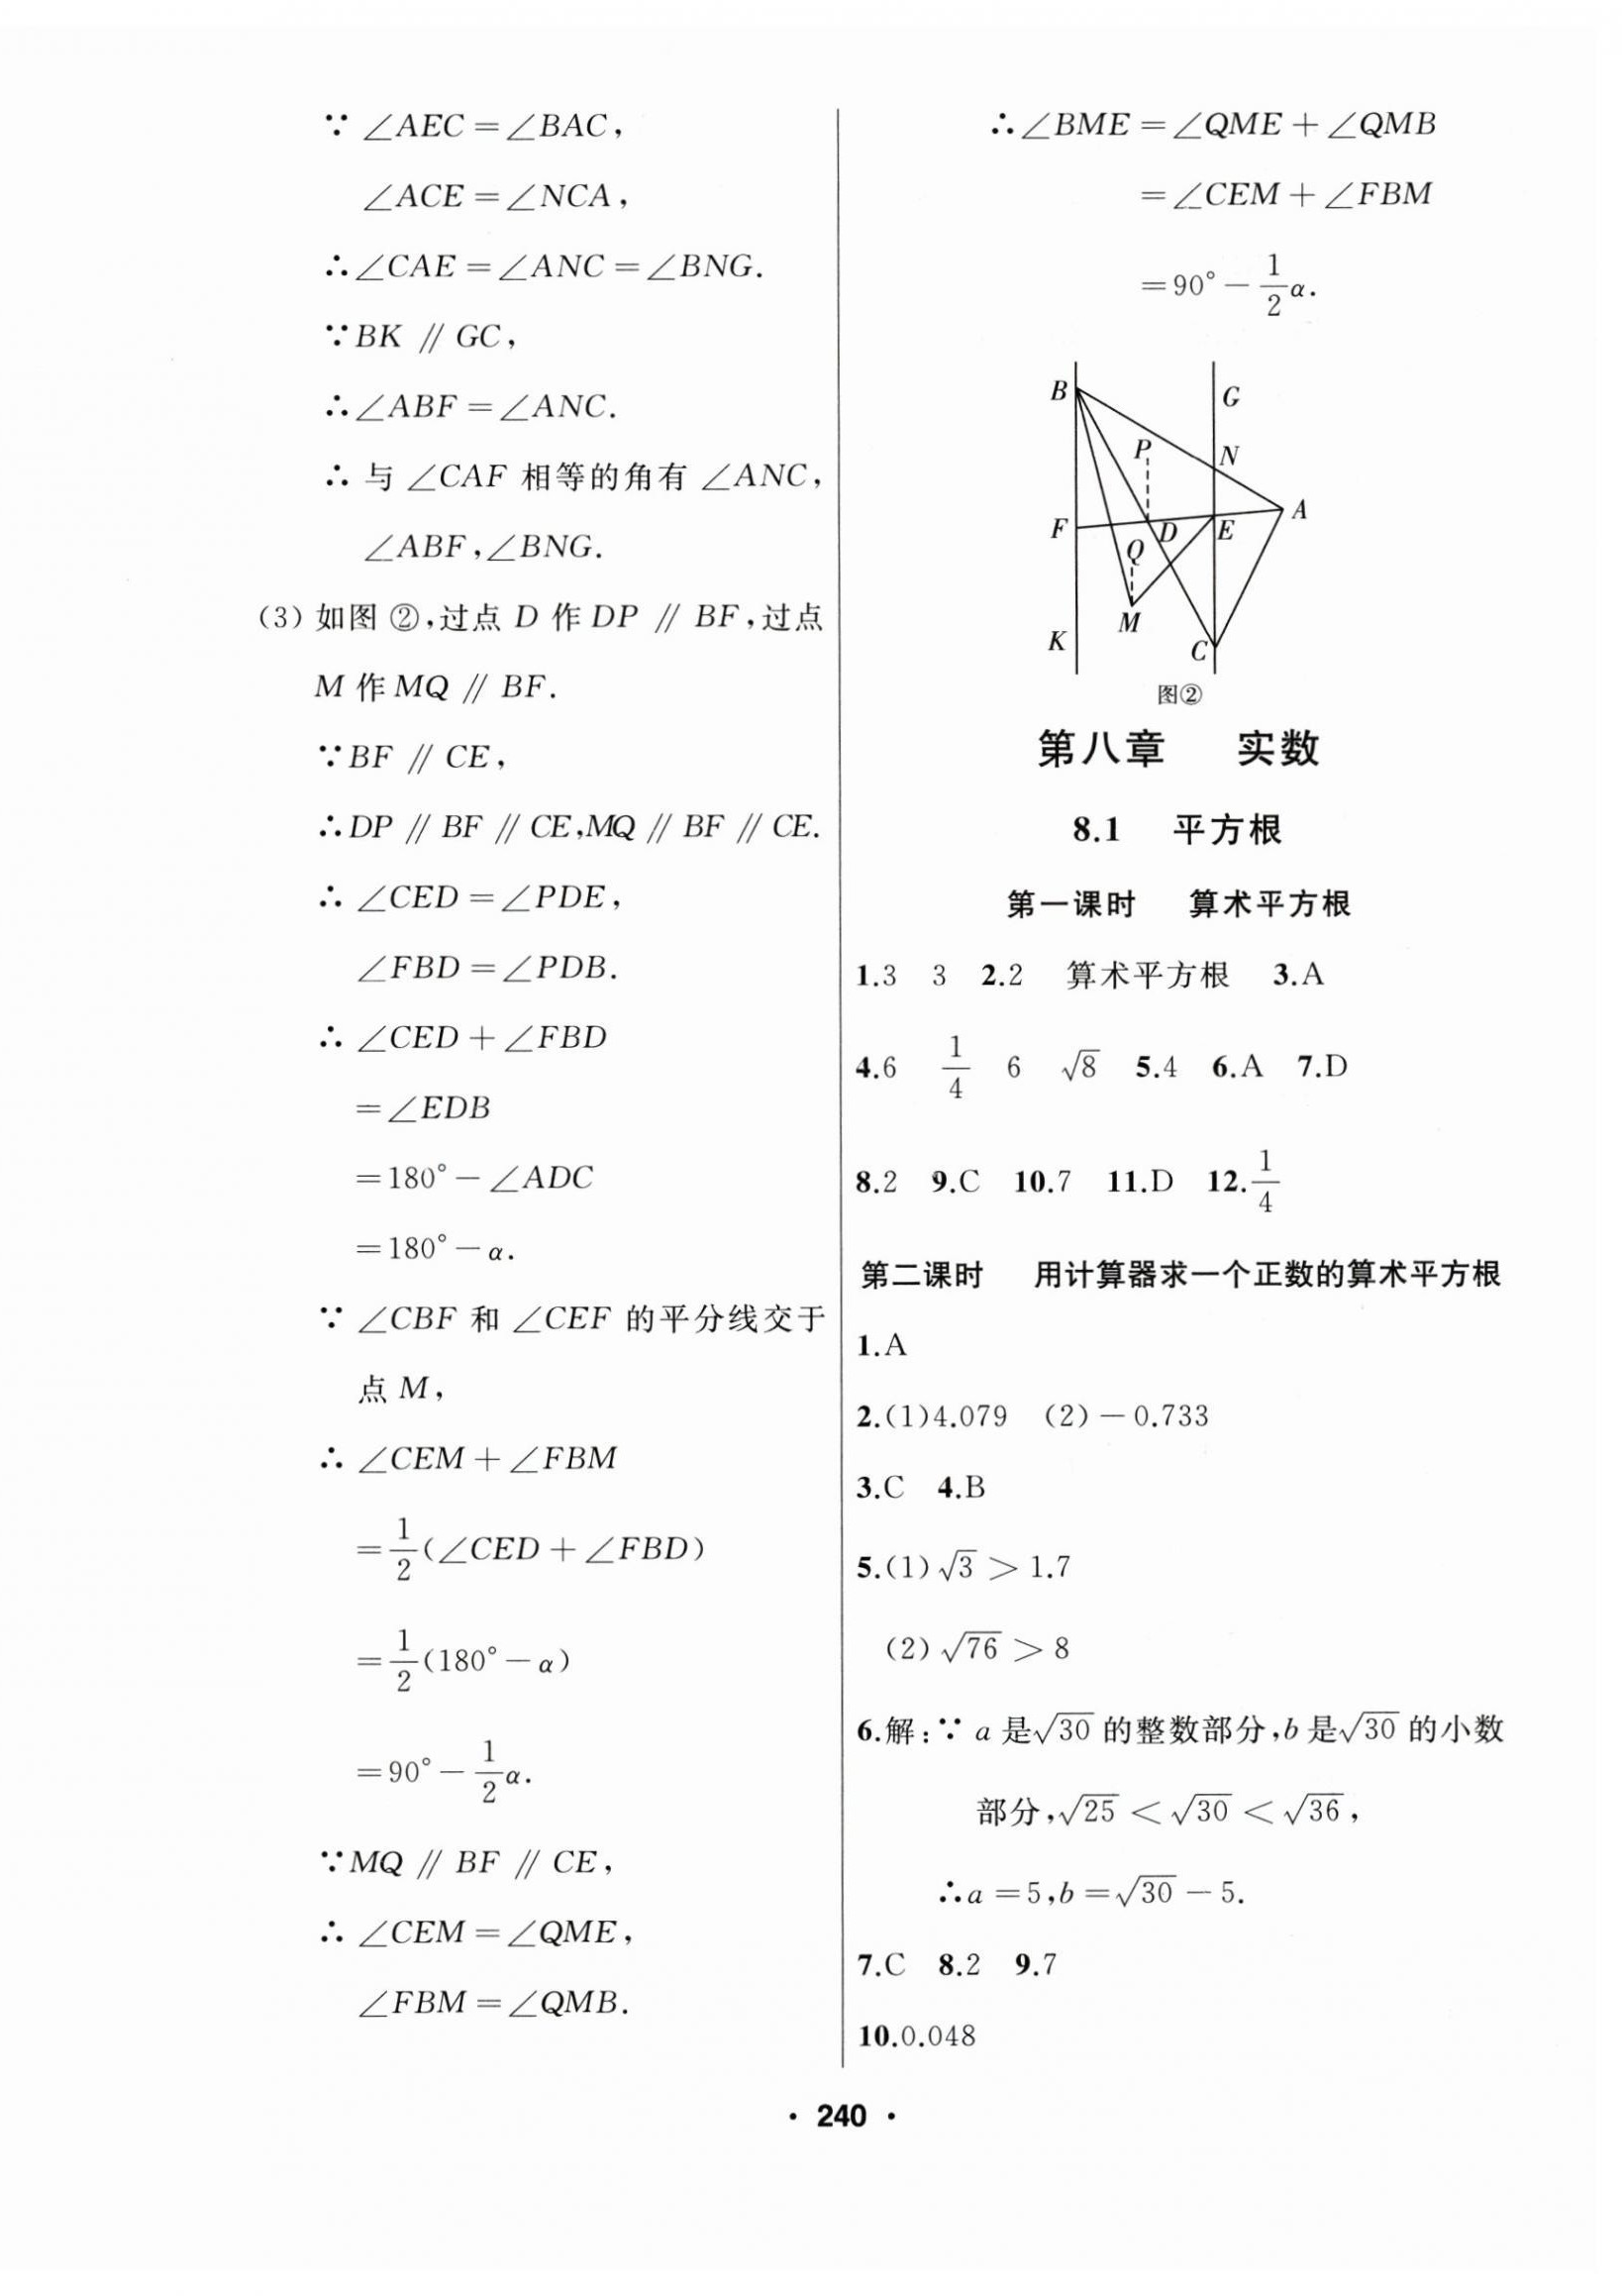 ∵ ∠AEC=∠BAC,
∠ACE=∠NCA,
∴∠CAE=∠ANC=∠BNG.
∵BK∥GC,
∴∠ABF=∠ANC.
∴ 与∠CAF 相等的角有∠ANC,
∠ABF,∠BNG.
(3)如图②,过点 D 作 DP∥BF,过点
M 作MQ∥BF.
∵BF∥CE,
∴DP∥BF∥CE,MQ∥BF∥CE.
∴ ∠CED=∠PDE,
∠FBD=∠PDB.
∴ ∠CED+∠FBD
=∠EDB
=180°-∠ADC
=180°-α.
∵ ∠CBF 和∠CEF 的平分线交于
点 M,
∴ ∠CEM+∠FBM
=1/2(∠CED+∠FBD)
=1/2(180°-α)
=90°-1/2α.
∵MQ∥BF∥CE,
∴ ∠CEM=∠QME,
∠FBM=∠QMB.
∴∠BME=∠QME+∠QMB
=∠CEM+∠FBM
=90°-1/2α.
B
G
P
N
A
F
D
E
Q
M
K
C
图②
第八章 实数
8.1 平方根
第一课时 算术平方根
1.3 3 2.2 算术平方根 3.A
4.6 1/4 6 √8 5.4 6.A 7.D
8.2 9.C 10.7 11.D 12.1/4
第二课时 用计算器求一个正数的算术平方根
1.A
2.(1)4.079 (2)-0.733
3.C 4.B
5.(1)√3>1.7
(2)√76>8
6.解:∵ a 是√30 的整数部分,b 是√30 的小数
部分,√25<√30<√36,
∴a=5,b=√30-5.
7.C 8.2 9.7
10.0.048
· 240 ·